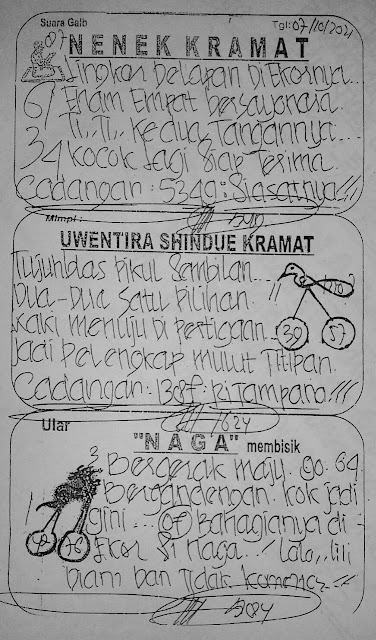 Suara Gaib
Tgl: 07/10/2021
07
NENEK KRAMAT
Lingkar Delapan Di Ekornya...
6/ Enam Empat bersayonara.
Ti.,Ti,. Kedua Tangannya...
34 Kocok Lagi Siap Terima
Cadangan: 5349: Siasatnya!!!
Mimpi:
UWENTIRA SHINDUE KRAMAT
Tujuh das Pikul Sembilan...
Dua-Dua Satu Pilihan.
Kaki menuju di Pertigaan
39 57
Jadi Pelengkap mulut Titipan.
7624
Ular
"NAGA" membisik
3 Bergerak maju. go. 64
Bergandengan. kok jadi
gini... 07 Bahagianya di
Ekor Si Naga..! Lalo,. lili
Diam Dan Tidak